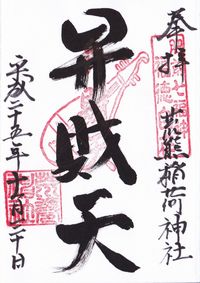 奉拝
荒熊稲荷神社
弁財天
平成二十五年十一月二十日